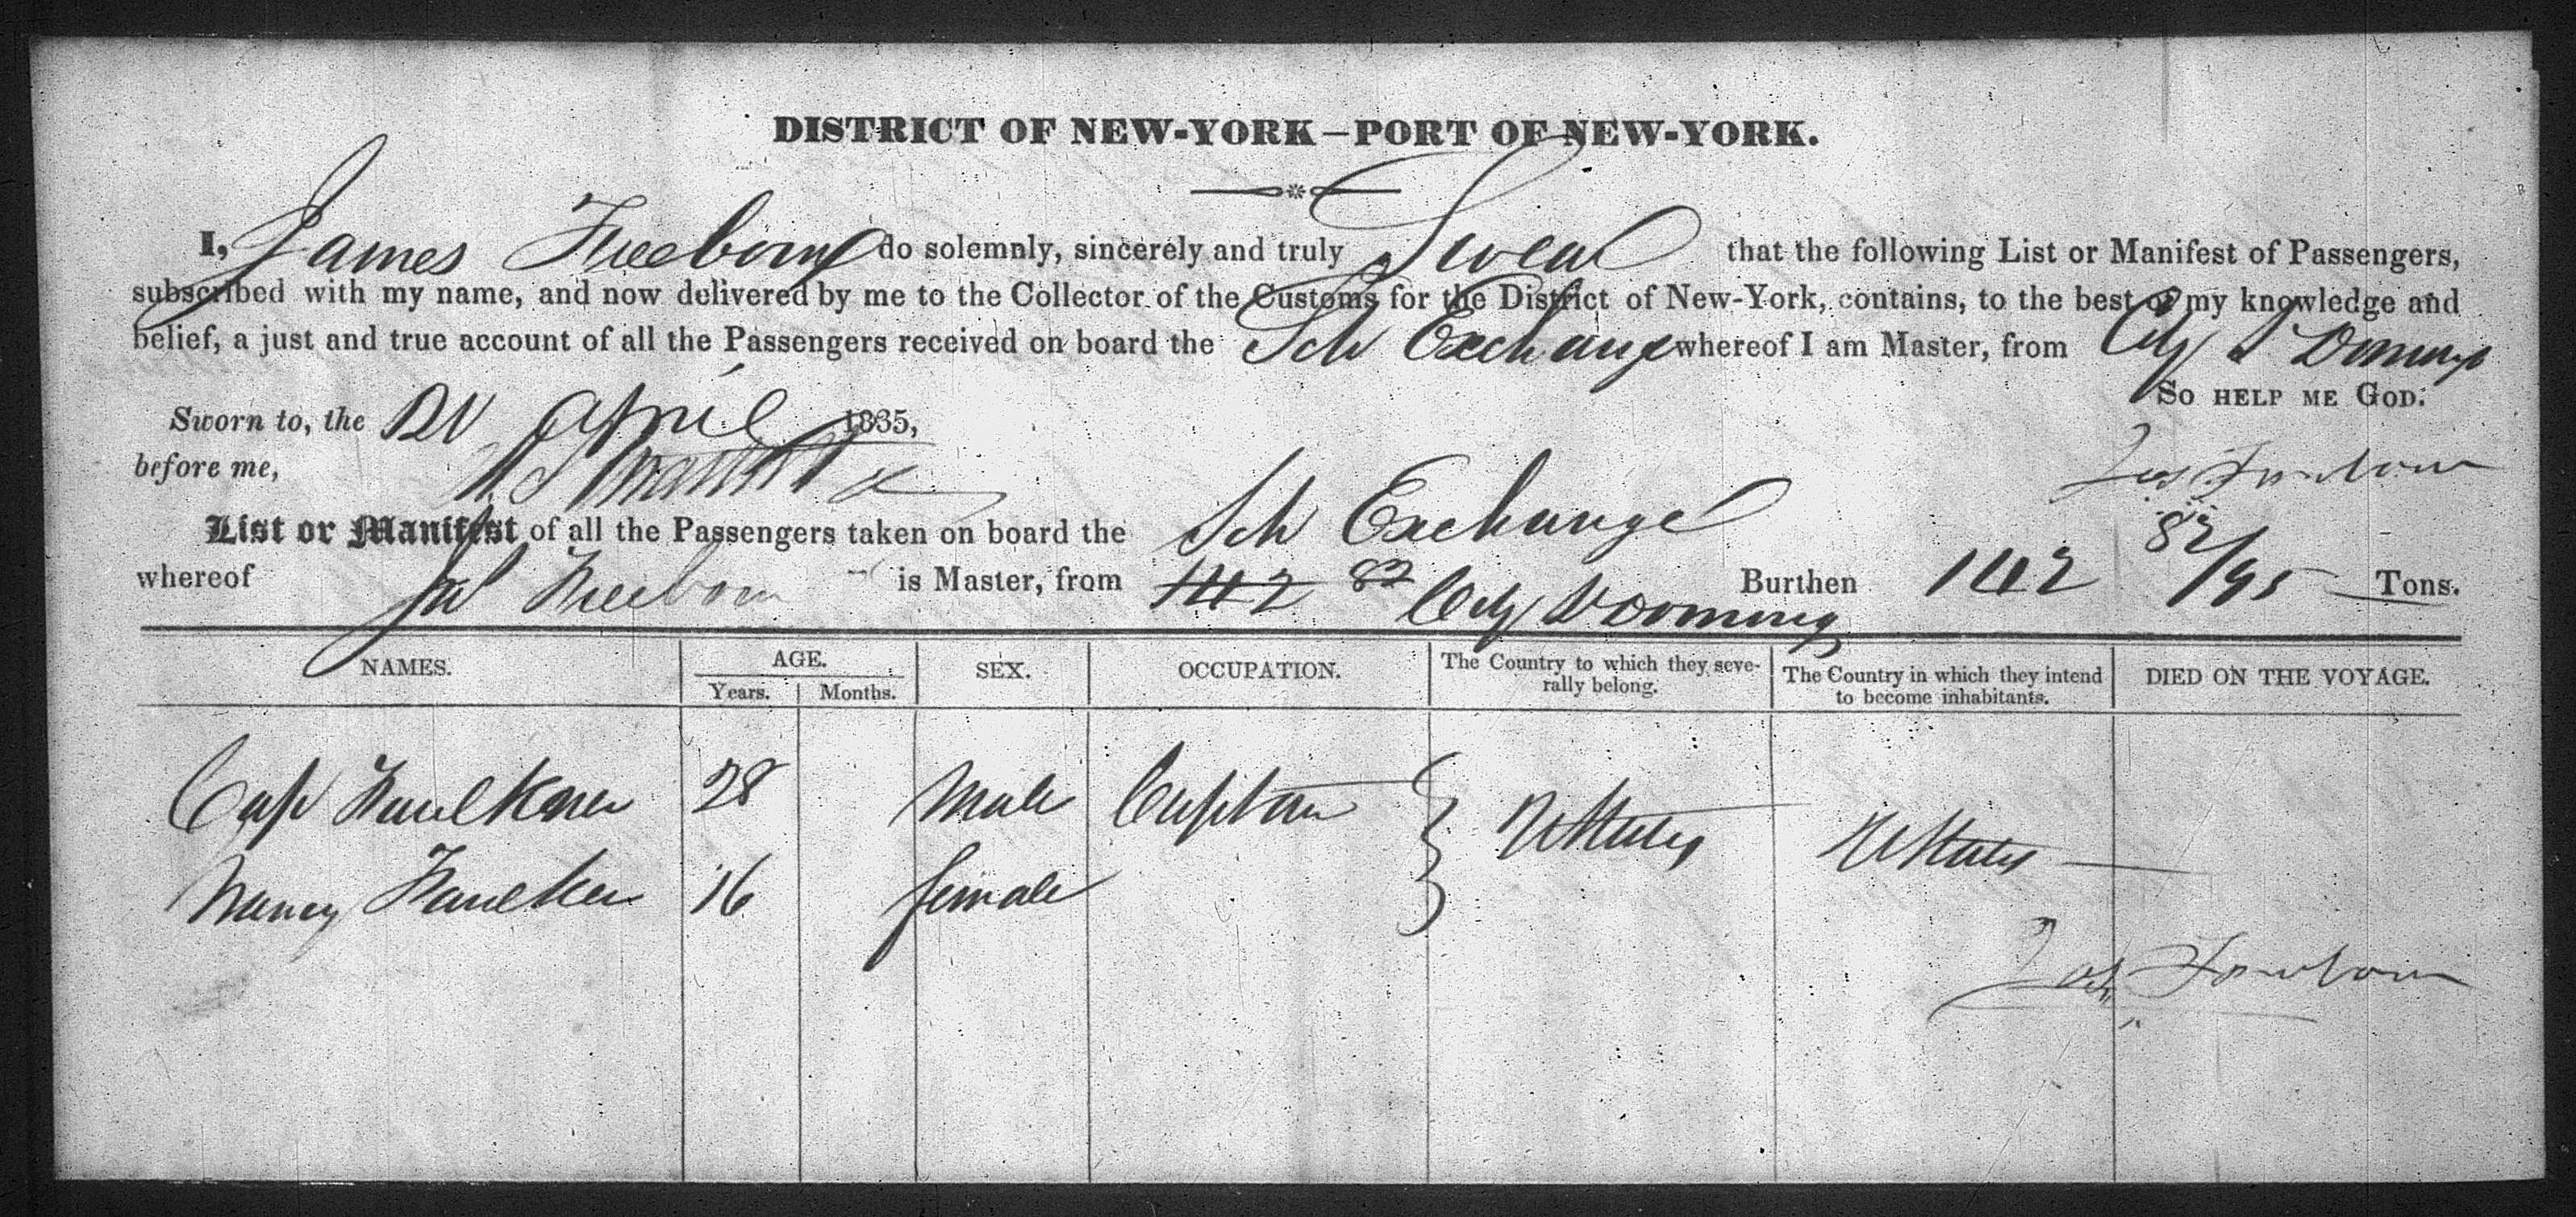 DISTRICT OF NEW-YORK—PORT OF NEW-YORK.
I, James Freeborn do solemnly, sincerely and truly Swear that the following List or Manifest of Passengers,
subscribed with my name, and now delivered by me to the Collector of the Customs for the District of New-York, contains, to the best of my knowledge and
belief, a just and true account of all the Passengers received on board the Sch Exchange whereof I am Master, from City St Domingo
SO HELP ME GOD.
Sworn to, the April 1835,
before me,
Jas Freeborn
List or Manifest of all the Passengers taken on board the Sch Exchange
whereof Jas Freeborn is Master, from 142 82 City St Domingo Burthen 142 82/95 Tons.
NAMES. AGE. Years. Months. SEX. OCCUPATION. The Country to which they severally belong. The Country in which they intend to become inhabitants. DIED ON THE VOYAGE.
Cap Faulkner 28 Male Captain U States U States
Nancy Faulkner 16 female
Jas Freeborn